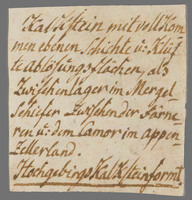 Kalkstein mit vollkom
menen ebenen, schicht- u: Klüf
te Ablösungsflächen, als
Zwischenlager im Mergel-
schiefer zwischen der Fäne
ren u: dem Camor im appen
zellerland.
Hochgebirgs Kalksteinformt.